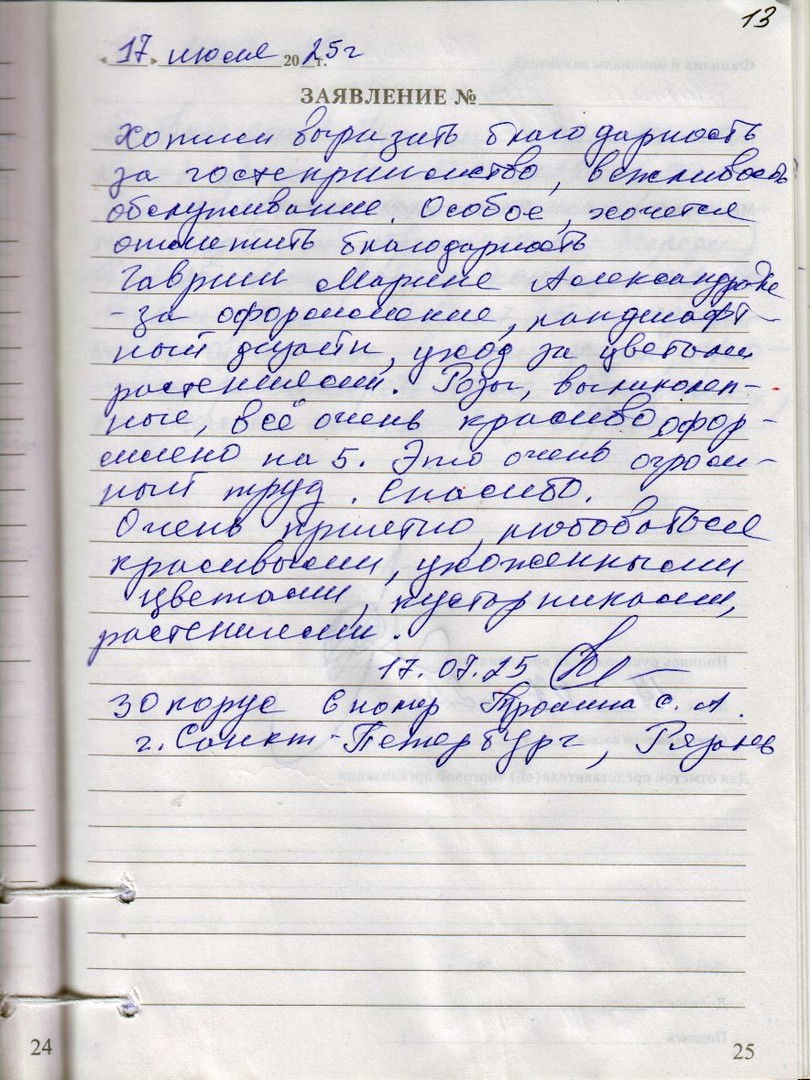 13
« 17 » июля 2025г г.
ЗАЯВЛЕНИЕ №
Хотим выразить благодарность
за гостеприимство, вежливость
обслуживание. Особое, хочется
отметить благодарность
Гавриш Марине Александровне
- за оформление, ландшафт-
ный дизайн, уход за цветами
растениями. Розы, великолеп-
ные, всё очень красиво офор-
млено на 5. Это очень огром-
ный труд. Спасибо.
Очень приятно, любоваться
красивыми, ухоженными
цветами, кустарниками,
растениями.
17.07.25
30 корпус 6 номер С. А.
г. Санкт-Петербург, Рязань
24
25